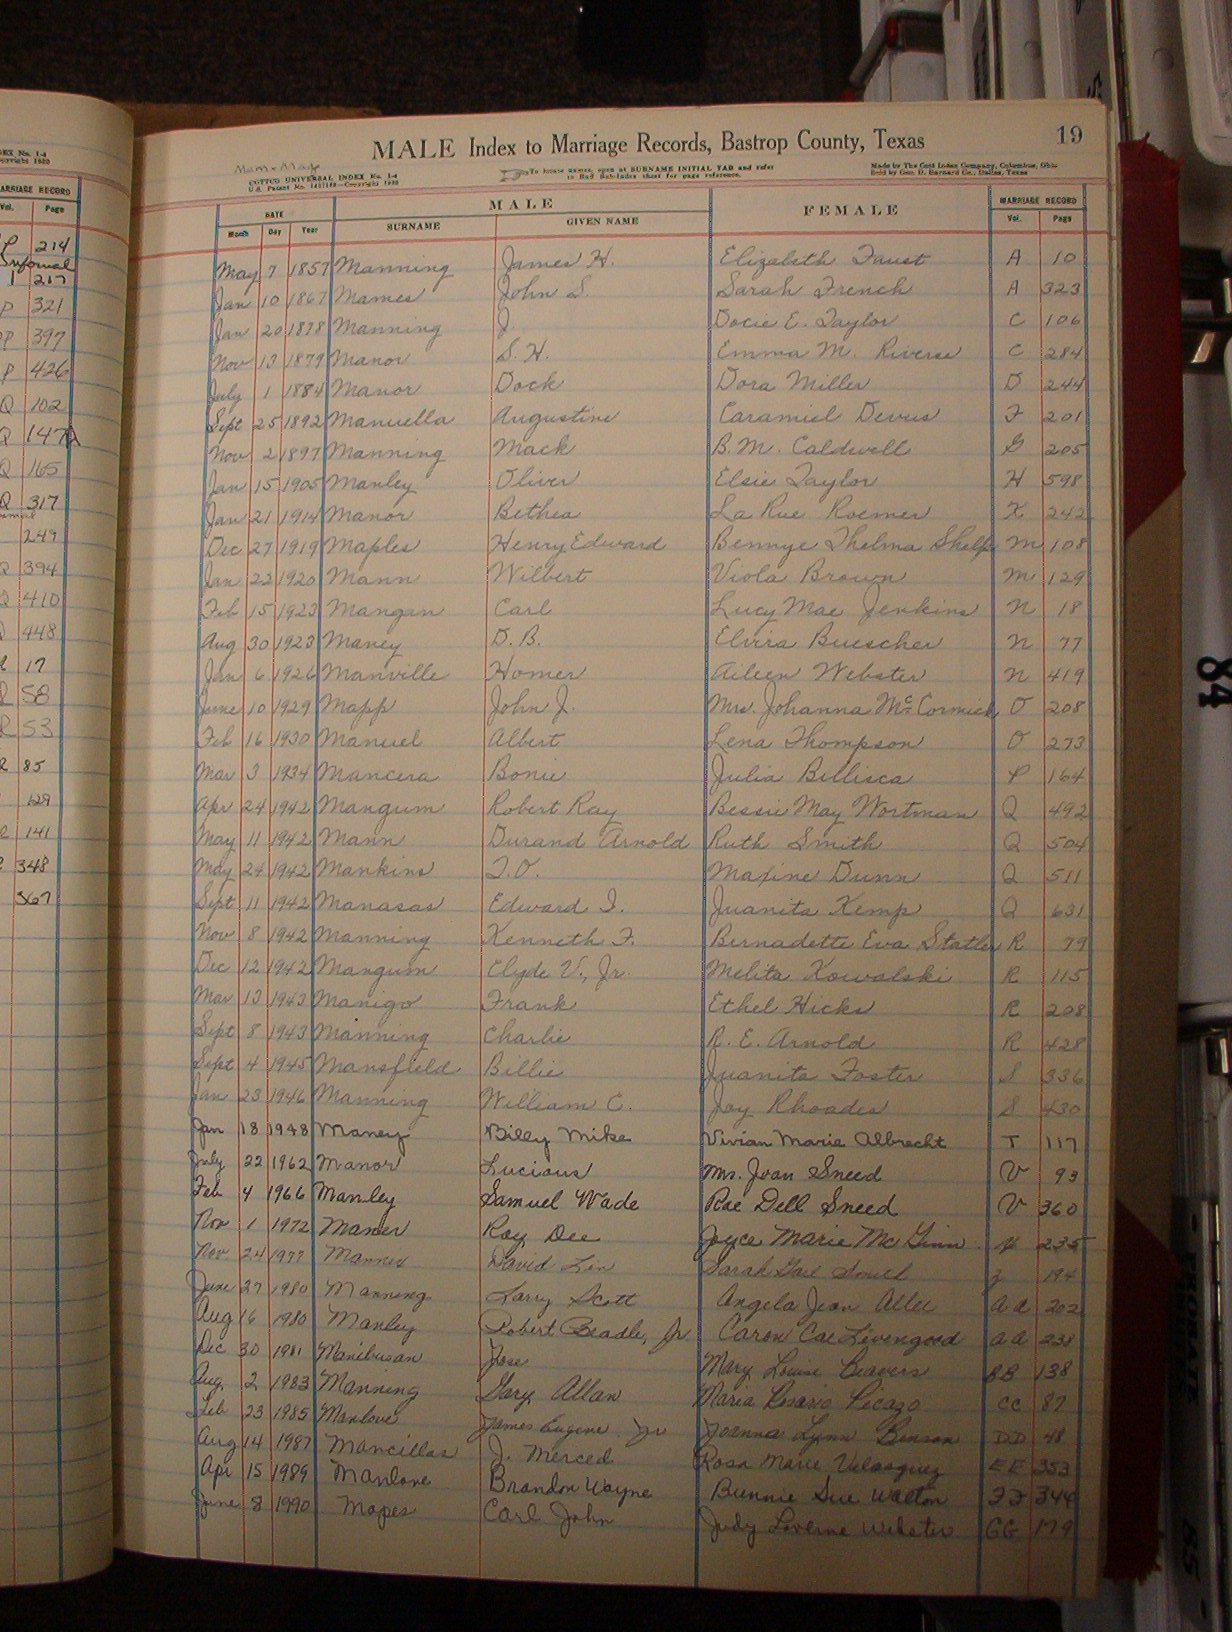 19
MALE Index to Marriage Records, Bastrop County, Texas
COTTCO UNIVERSAL INDEX No. 1-4
To locate names, open at SURNAME INITIAL TAB and refer
Made by The Cott Index Company, Columbus, Ohio
Sold by Geo. D. Barnard Co., Dallas, Texas
DATE MALE FEMALE MARRIAGE RECORD
Month Day Year SURNAME GIVEN NAME Vol. Page
May 7 1857 Manning James H. Elizabeth Faust A 10
Jan 10 1867 Mames John S. Sarah French A 323
Jan 20 1878 Manning J. Docie E. Taylor C 106
Nov 13 1879 Manor S. H. Emma M. Riverse C 284
July 1 1884 Manor Dock Dora Miller D 244
Sept 25 1892 Manuella Augustine Caramiel Devus F 201
Nov 2 1897 Manning Mack B. M. Caldwell G 205
Jan 15 1905 Manley Oliver Elsie Taylor H 598
Jan 21 1914 Manor Bethea La Rue Roemer K 242
Dec 27 1919 Maples Henry Edward Bennye Thelma Shelp M 108
Jan 22 1920 Mann Wilbert Viola Brown M 129
Feb 15 1923 Mangan Carl Lucy Mae Jenkins N 18
Aug 30 1923 Maney D. B. Elvira Buescher N 77
Jan 6 1926 Manville Homer Aileen Webster N 419
June 10 1929 Mapp John J. Mrs. Johanna McCormick O 208
Feb 16 1930 Manuel Albert Lena Thompson O 273
Mar 3 1934 Mancera Bonie Julia Billisca P 164
Apr 24 1942 Mangum Robert Ray Bessie May Wortman Q 492
May 11 1942 Mann Durand Arnold Ruth Smith Q 504
May 24 1942 Mankins T. O. Maxine Dunn Q 511
Sept 11 1942 Manasas Edward I. Juanita Kemp Q 631
Nov 8 1942 Manning Kenneth F. Bernadette Eva Statler R 79
Dec 12 1942 Mangum Clyde V., Jr. Melita Kowalski R 115
Mar 13 1943 Manigo Frank Ethel Hicks R 208
Sept 8 1943 Manning Charlie R. E. Arnold R 428
Sept 4 1945 Mansfield Billie Juanita Foster S 336
Jan 23 1946 Manning William C. Joy Rhoades S 430
Jan 18 1948 Maney Billy Mike Vivian Marie Albrecht T 117
July 22 1962 Manor Lucious Mrs. Jvan Sneed V 93
Feb 4 1966 Manley Samuel Wade Rae Dell Sneed V 360
Nov 1 1972 Maner Roy Dee Joyce Marie McGinn 235
Nov 24 1977 Manner David Len Sarah Gail Smith Z 194
June 27 1980 Manning Larry Scott Angela Jean Allee AA 202
Aug 16 1980 Manley Robert Beadle, Jr Caron Cae Livengood AA 238
Dec 30 1981 Manibusan Jose Mary Louise Beavers BB 138
Aug. 2 1983 Manning Gary Allan Maria Rosario Picazo CC 87
Feb 23 1985 Manlove James Eugene Jr Joanna Lynn Benson DD 48
Aug 14 1987 Mancillas J. Merced Rosa Marie Velasquez EE 353
Apr 15 1989 Manlove Brandon Wayne Bunnie Sue Walton FF 344
June 8 1990 Mapes Carl John Judy Laverne Webster GG 179
MARRIAGE RECORD
Vol. Page
P 214
Informal
1 217
P 321
OP 397
P 426
Q 102
Q 147A
Q 165
Q 317
249
Q 394
Q 410
448
17
R 58
R 53
R 85
129
R 141
348
367
84
85